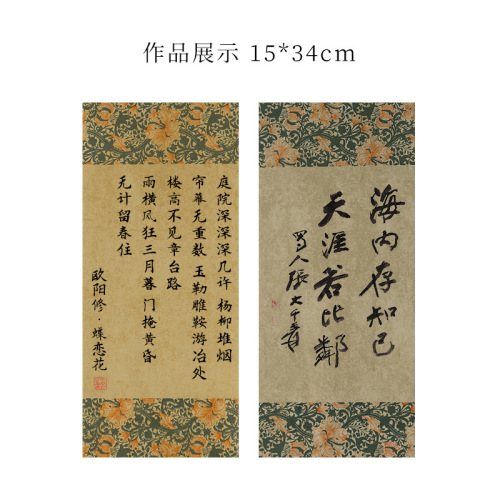 作品展示 15*34cm
庭院深深深几许 杨柳堆烟
帘幕无重数 玉勒雕鞍游冶处
楼高不见章台路
雨横风狂三月暮 门掩黄昏
无计留春住
欧阳修·蝶恋花
海内存知己
天涯若比邻
蜀人张大千爰